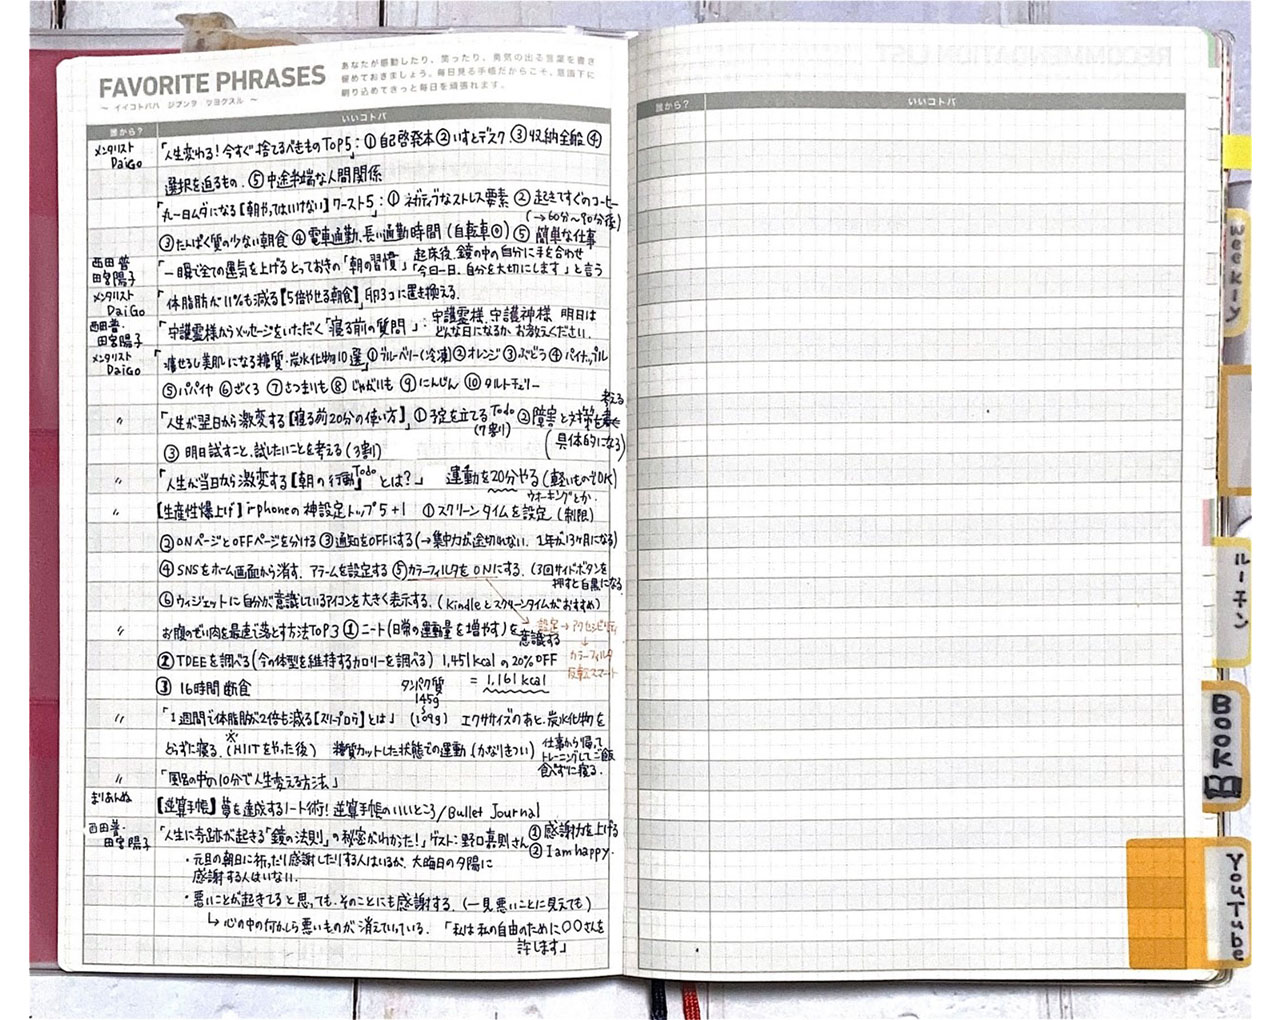 FAVORITE PHRASES
〜 イイコトバハ ジブンヲ ツヨクスル 〜
あなたが感動したり、笑ったり、勇気の出る言葉を書き
留めておきましょう。毎日見る手帳だからこそ、意識下に
刷り込めてきっと毎日を頑張れます。
誰から？ いいコトバ
メンタリスト DaiGo
「人生変わる！今すぐ捨てるべきものTOP5」：① 自己啓発本 ② いすとデスク ③ 収納全般 ④
選択を迫るもの、⑤ 中途半端な人間関係
「丸一日ムダになる【朝やってはいけない】ワースト5」：① ネガティブなストレス要素 ② 起きてすぐのコーヒー
(→60分〜90分後)
③ たんぱく質の少ない朝食 ④ 電車通勤、長い通勤時間 (自転車◎) ⑤ 簡単な仕事
西田普 田宮陽子
「一瞬で全ての運気を上げるとっておきの「朝の習慣」 起床後、鏡の中の自分に手を合わせ
「今日一日、自分を大切にします」と言う
メンタリスト DaiGo
「体脂肪が11%も減る【5倍やせる朝食】」卵3コに置き換える.
西田普・田宮陽子
「守護霊様からメッセージをいただく「寝る前の質問」： 守護霊様、守護神様 明日は
どんな日になるか、お教えください.
メンタリスト DaiGo
「痩せるし美肌になる糖質・炭水化物10選」① ブルーベリー(冷凍) ② オレンジ ③ ぶどう ④ パイナップル
⑤ パパイヤ ⑥ ざくろ ⑦ さつまいも ⑧ じゃがいも ⑨ にんじん ⑩ タルトチェリー
〃 「人生が翌日から激変する【寝る前20分の使い方】」① 予定を立てる Todo (7割) ② 障害と対策を 考える
(具体的になる)
③ 明日試すこと、試したいことを考える (3割)
〃 「人生が当日から激変する【朝の行動】Todo とは？」 運動を20分やる (軽いものでOK)
ウォーキングとか.
〃 【生産性爆上げ】iPhoneの神設定トップ5+1 ① スクリーンタイムを設定 (制限)
② ONページとOFFページを分ける ③ 通知をOFFにする (→集中力が途切れない. 1年が13ヶ月になる)
④ SNSをホーム画面から消す. アラームを設定する ⑤ カラーフィルタをONにする. (3回サイドボタンを
押すと白黒になる
⑥ ウィジェットに自分が意識しているアイコンを大きく表示する. (Kindleとスクリーンタイムがおすすめ)
〃 お腹のぜい肉を最速で落とす方法TOP3 ① ニート (日常の運動量を増やす) を意識する
設定 → アクセシビリティ
↓
カラーフィルタ
② TDEEを調べる (今の体型を維持するカロリーを調べる) 1,451kcal の 20%OFF
= 1,161kcal
③ 16時間断食 タンパク質
145g
(109g)
〃 「1週間で体脂肪が2倍も減る【スリープロウ】とは」 エクササイズのあと、炭水化物を
とらずに寝る. ※(HIITをやった後) 糖質カットした状態での運動 (かなりきつい) 仕事から帰って
トレーニングしてご飯
食べずに寝る.
〃 「風呂の中の10分で人生変える方法」
まりあんぬ
【逆算手帳】夢を達成するノート術！逆算手帳のいいところ/Bullet Journal
西田普・田宮陽子
「人生に奇跡が起きる「鏡の法則」の秘密がわかった！」ゲスト：野口嘉則さん ① 感謝力を上げる
② I am happy.
・元旦の朝日に祈ったり感謝したりする人はいるが、大晦日の夕陽に
感謝する人はいない.
・悪いことが起きてると思っても、そのことにも感謝する. (一見悪いことに見えても)
↳ 心の中の何かしら悪いものが消えていっている. 「私は私の自由のために〇〇さんを
許します」
誰から？ いいコトバ
Weekly
ルーチン
Book
YouTube